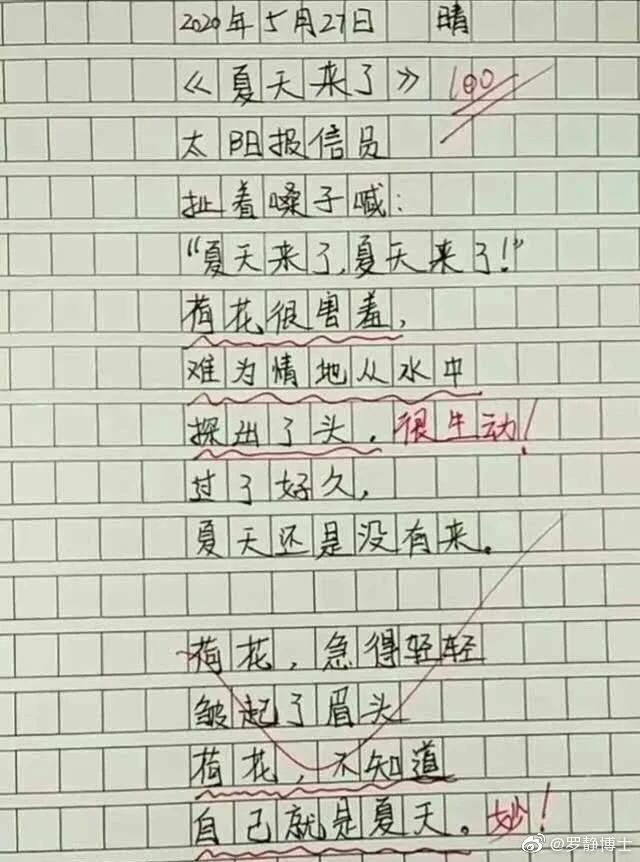 2020年5月27日 晴
《夏天来了》 100
太阳报信员
扯着嗓子喊:
“夏天来了,夏天来了!”
荷花很害羞,
难为情地从水中
探出了头。很生动!
过了好久,
夏天还是没有来。
荷花,急得轻轻
皱起了眉头
荷花,不知道
自己就是夏天。妙!
@罗静博士